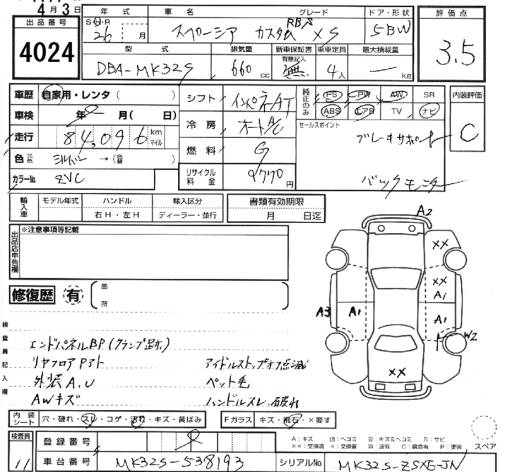 4月3日
出品番号 年式 車名 グレード ドア・形状 評価点
4024
S・H・R 26 月 スペーシア カスタム RBS XS 5BW
3.5
型式 排気量 新車保証書 有無記入 乗車定員 最大積載量
DBA-MK32S 660 cc 無 4人 kg
車歴 自家用・レンタ( )
シフト インパネAT
純正のみ PS PW AW SR
ABS エアB TV ナビ
内装評価 C
車検 年 月( 日)
冷房 オートAC
セールスポイント
走行 84,096 km マイル
燃料 G
ブレーキサポート
色 元色 シルバー →(替 )
カラーNo. ZVC
リサイクル料金 9770
バックモニター
輸入車 モデル年式 ハンドル 輸入区分 書類有効期限
右H・左H ディーラー・並行 月 日迄
出品店申告欄 ※注意事項等記載
修復歴 有 箇所
A2
XX
XX
A1
A3 A1 A1
W2
XX
検査員記入欄
エンドパネルBP(クランプ跡有)
リヤフロアP外ト
外装A.U
AWキズ
アイドルストップオフ点滅
ペット毛
ハンドルスレ、破れ
内装シート 穴・破れ・スレ・コゲ・汚れ・キズ・黄ばみ Fガラス キズ・飛石・×要す
検査員 11
登録番号
A:キズ U:ヘコミ B:キズ&ヘコミ S:サビ
スペア
車台番号 MK32S-538193 シリアルNo. MK32S-ZSXE-JN